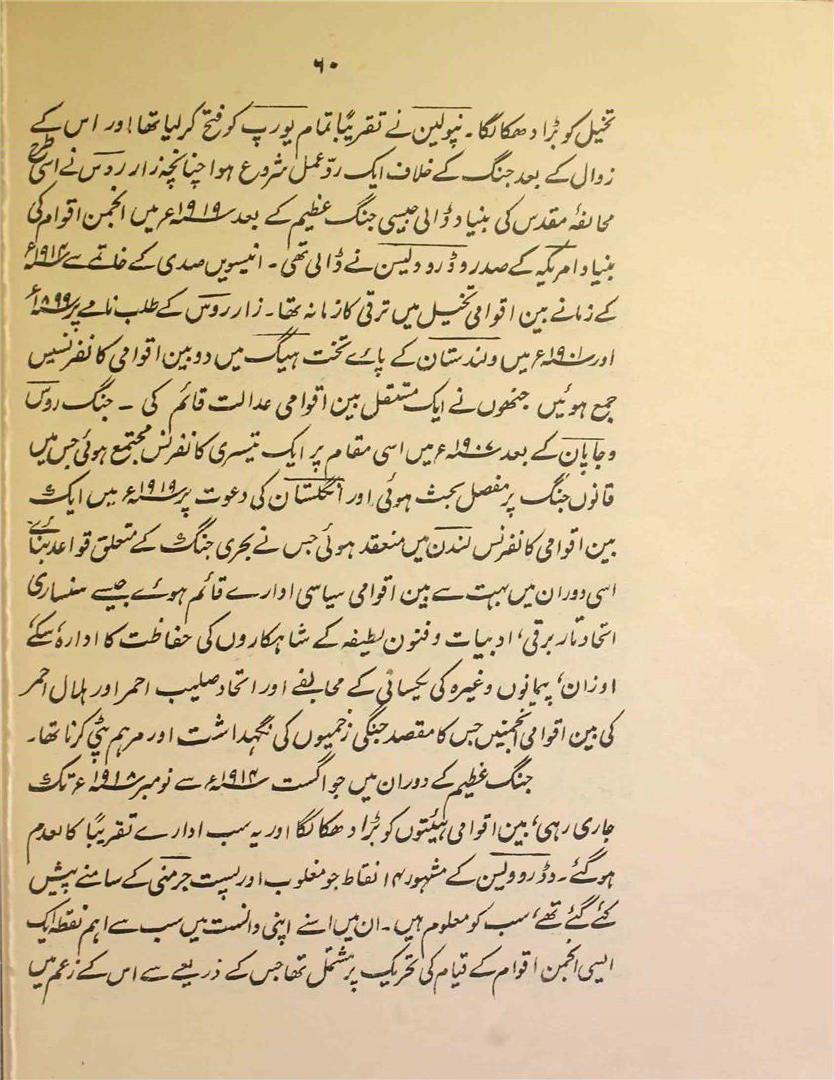 ۶۰
تخیل کو بڑا دھکا لگا۔ نپولین نے تقریباً تمام یورپ کو فتح کر لیا تھا اور اس کے
زوال کے بعد جنگ کے خلاف ایک ردّ عمل شروع ہوا چنانچہ زار روس نے اسی طرح
محالفۂ مقدس کی بنیاد ڈالی جیسی جنگ عظیم کے بعد ۱۹۱۹ء میں انجمن اقوام کی
بنیاد امریکہ کے صدر وڈرو ولسن نے ڈالی تھی۔ انیسویں صدی کے خاتمے سے ۱۹۱۴ء
کے زمانے بین اقوامی تخیل میں ترقی کا زمانہ تھا۔ زار روس کے طلب نامے پر ۱۸۹۹ء
اور ۱۹۰۱ء میں ولندستان کے پائے تخت ہیگ میں دو بین اقوامی کانفرنسیں
جمع ہوئیں جنھوں نے ایک مستقل بین اقوامی عدالت قائم کی ۔ جنگ روس
و جاپان کے بعد ۱۹۰۷ء میں اسی مقام پر ایک تیسری کانفرنس مجتمع ہوئی جس میں
قانون جنگ پر مفصل بحث ہوئی اور انگلستان کی دعوت پر ۱۹۱۹ء میں ایک
بین اقوامی کانفرنس لندن میں منعقد ہوئی جس نے بحری جنگ کے متعلق قواعد بنائے
اسی دوران میں بہت سے بین اقوامی سیاسی ادارے قائم ہوئے جیسے سنساری
اتحاد تار برقی، ادبیات و فنون لطیفہ کے شاہکاروں کی حفاظت کا ادارہ، سکے،
اوزان، پیمانوں وغیرہ کی یکسانی کے محالفے اور اتحاد صلیب احمر اور ہلال احمر
کی بین اقوامی انجمنیں جس کا مقصد جنگی زخمیوں کی نگہداشت اور مرہم پٹی کرنا تھا۔
جنگ عظیم کے دوران میں جو اگست ۱۹۱۴ء سے نومبر ۱۹۱۸ء تک
جاری رہی، بین اقوامی ہیئتوں کو بڑا دھکا لگا اور یہ سب ادارے تقریباً کالعدم
ہو گئے۔ وڈرو ولسن کے مشہور ۱۴ نقاط جو مغلوب اور پست جرمنی کے سامنے پیش
کئے گئے تھے، سب کو معلوم ہیں۔ ان میں اسنے اپنی دانست میں سب سے اہم نقطہ ایک
ایسی انجمن اقوام کے قیام کی تحریک پر مشتمل تھا جس کے ذریعے سے اس کے زعم میں